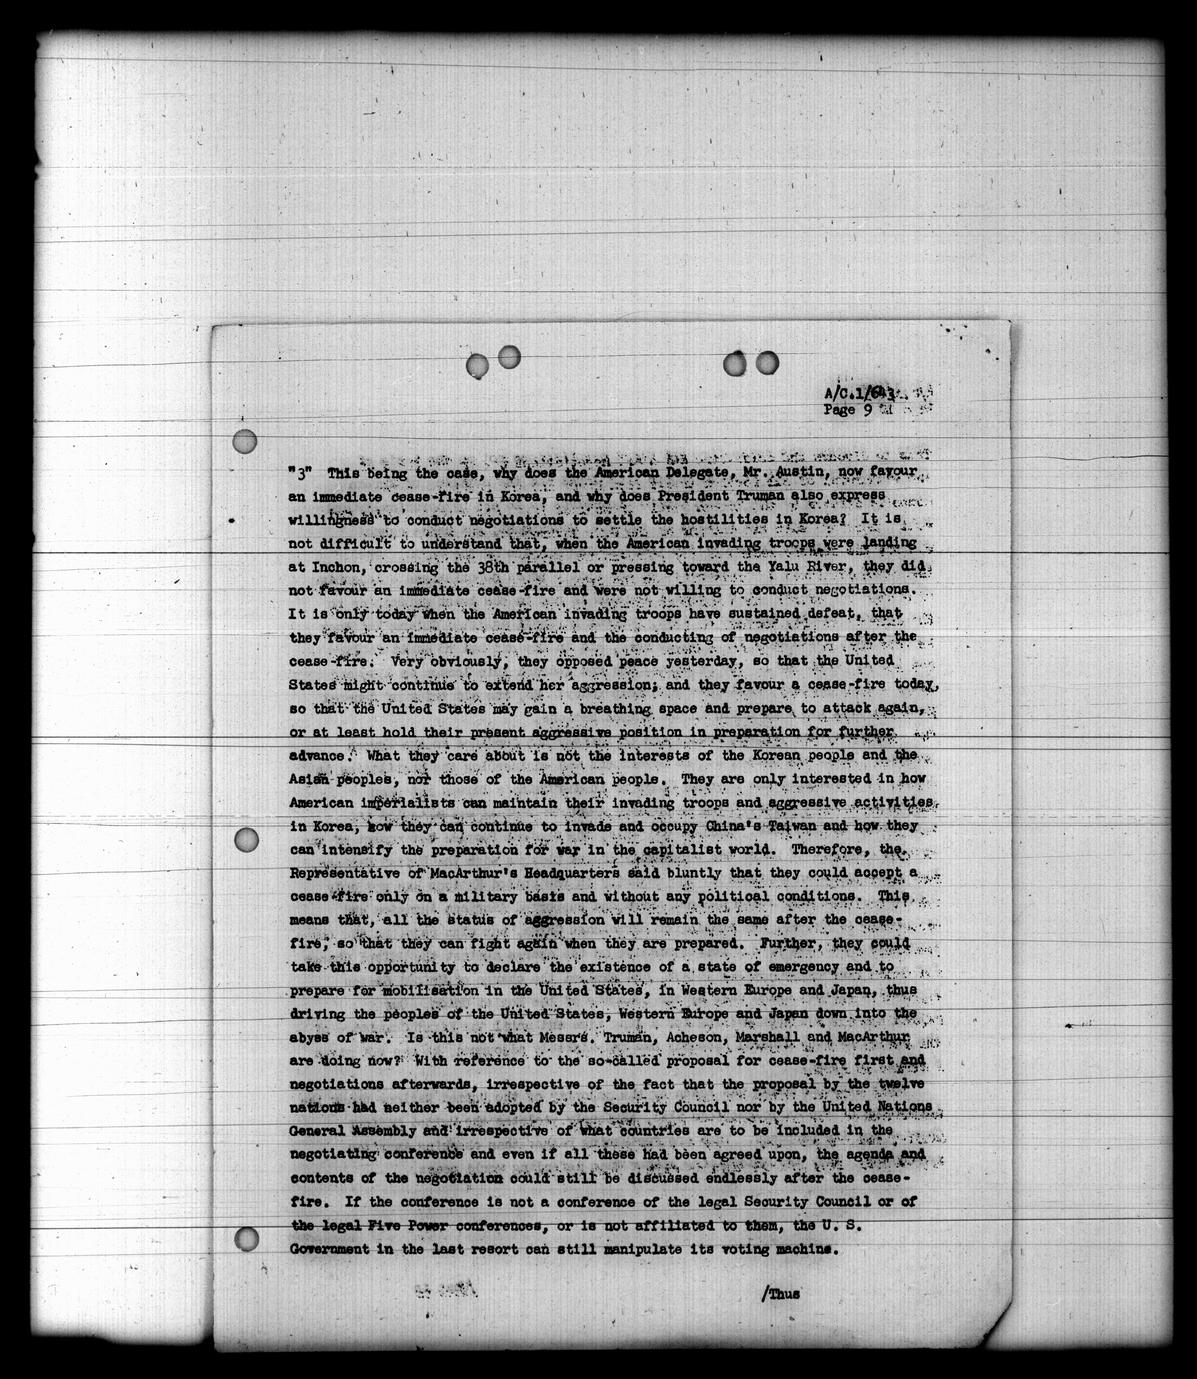 A/C.1/643
Page 9
"3" This being the case, why does the American Delegate, Mr. Austin, now favour
an immediate cease-fire in Korea, and why does President Truman also express
willingness to conduct negotiations to settle the hostilities in Korea? It is
not difficult to understand that, when the American invading troops were landing
at Inchon, crossing the 38th parallel or pressing toward the Yalu River, they did
not favour an immediate cease-fire and were not willing to conduct negotiations.
It is only today when the American invading troops have sustained defeat, that
they favour an immediate cease-fire and the conducting of negotiations after the
cease-fire. Very obviously, they opposed peace yesterday, so that the United
States might continue to extend her aggression; and they favour a cease-fire today,
so that the United States may gain a breathing space and prepare to attack again,
or at least hold their present aggressive position in preparation for further
advance. What they care about is not the interests of the Korean people and the
Asian peoples, nor those of the American people. They are only interested in how
American imperialists can maintain their invading troops and aggressive activities
in Korea, how they can continue to invade and occupy China's Taiwan and how they
can intensify the preparation for war in the capitalist world. Therefore, the
Representative of MacArthur's Headquarters said bluntly that they could accept a
cease-fire only on a military basis and without any political conditions. This
means that, all the status of aggression will remain the same after the cease-
fire, so that they can fight again when they are prepared. Further, they could
take this opportunity to declare the existence of a state of emergency and to
prepare for mobilisation in the United States, in Western Europe and Japan, thus
driving the peoples of the United States, Western Europe and Japan down into the
abyss of war. Is this not what Messrs. Truman, Acheson, Marshall and MacArthur
are doing now? With reference to the so-called proposal for cease-fire first and
negotiations afterwards, irrespective of the fact that the proposal by the twelve
nations had neither been adopted by the Security Council nor by the United Nations
General Assembly and irrespective of what countries are to be included in the
negotiating conference and even if all these had been agreed upon, the agenda and
contents of the negotiation could still be discussed endlessly after the cease-
fire. If the conference is not a conference of the legal Security Council or of
the legal Five Power conferences, or is not affiliated to them, the U. S.
Government in the last resort can still manipulate its voting machine.
/Thus